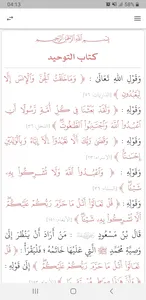 04:13
58%
بسم الله الرحمن الرحيم
كتاب التوحيد
وَقَوْلِ اللهِ تَعَالَى : ﴿ وَمَا خَلَقْتُ الْجِنَّ وَالْإِنْسَ إِلَّا
لِيَعْبُدُونِ ﴾
وَقَوْلِهِ : ﴿ وَلَقَدْ بَعَثْنَا فِي كُلِّ أُمَّةٍ رَسُولًا أَنِ
اُعْبُدُوا اللَّهَ وَاجْتَنِبُوا الطَّاغُوتَ ﴾
وَقَوْلِهِ : ﴿ وَقَضَى رَبُّكَ أَلَّا تَعْبُدُوا إِلَّا إِيَّاهُ وَبِالْوَالِدَيْنِ
إِحْسَانًا ﴾
وَقَوْلِهِ : ﴿ وَاعْبُدُوا اللَّهَ وَلَا تُشْرِكُوا بِهِ
شَيْئًا ﴾
وَقَوْلِهِ : ﴿ قُلْ تَعَالَوْا أَتْلُ مَا حَرَّمَ رَبُّكُمْ عَلَيْكُمْ
أَلَّا تُشْرِكُوا بِهِ شَيْئًا ﴾
قَالَ ابْنُ مَسْعُودٍ : مَنْ أَرَادَ أَنْ يَنْظُرَ إِلَى
وَصِيَّةِ مُحَمَّدٍ ﷺ الَّتِي عَلَيْهَا خَاتَمُهُ ؛ فَلْيَقْرَأْ :
﴿ قُلْ تَعَالَوْا أَتْلُ مَا حَرَّمَ رَبُّكُمْ عَلَيْكُمْ ﴾ إِلَى قَوْلِهِ :